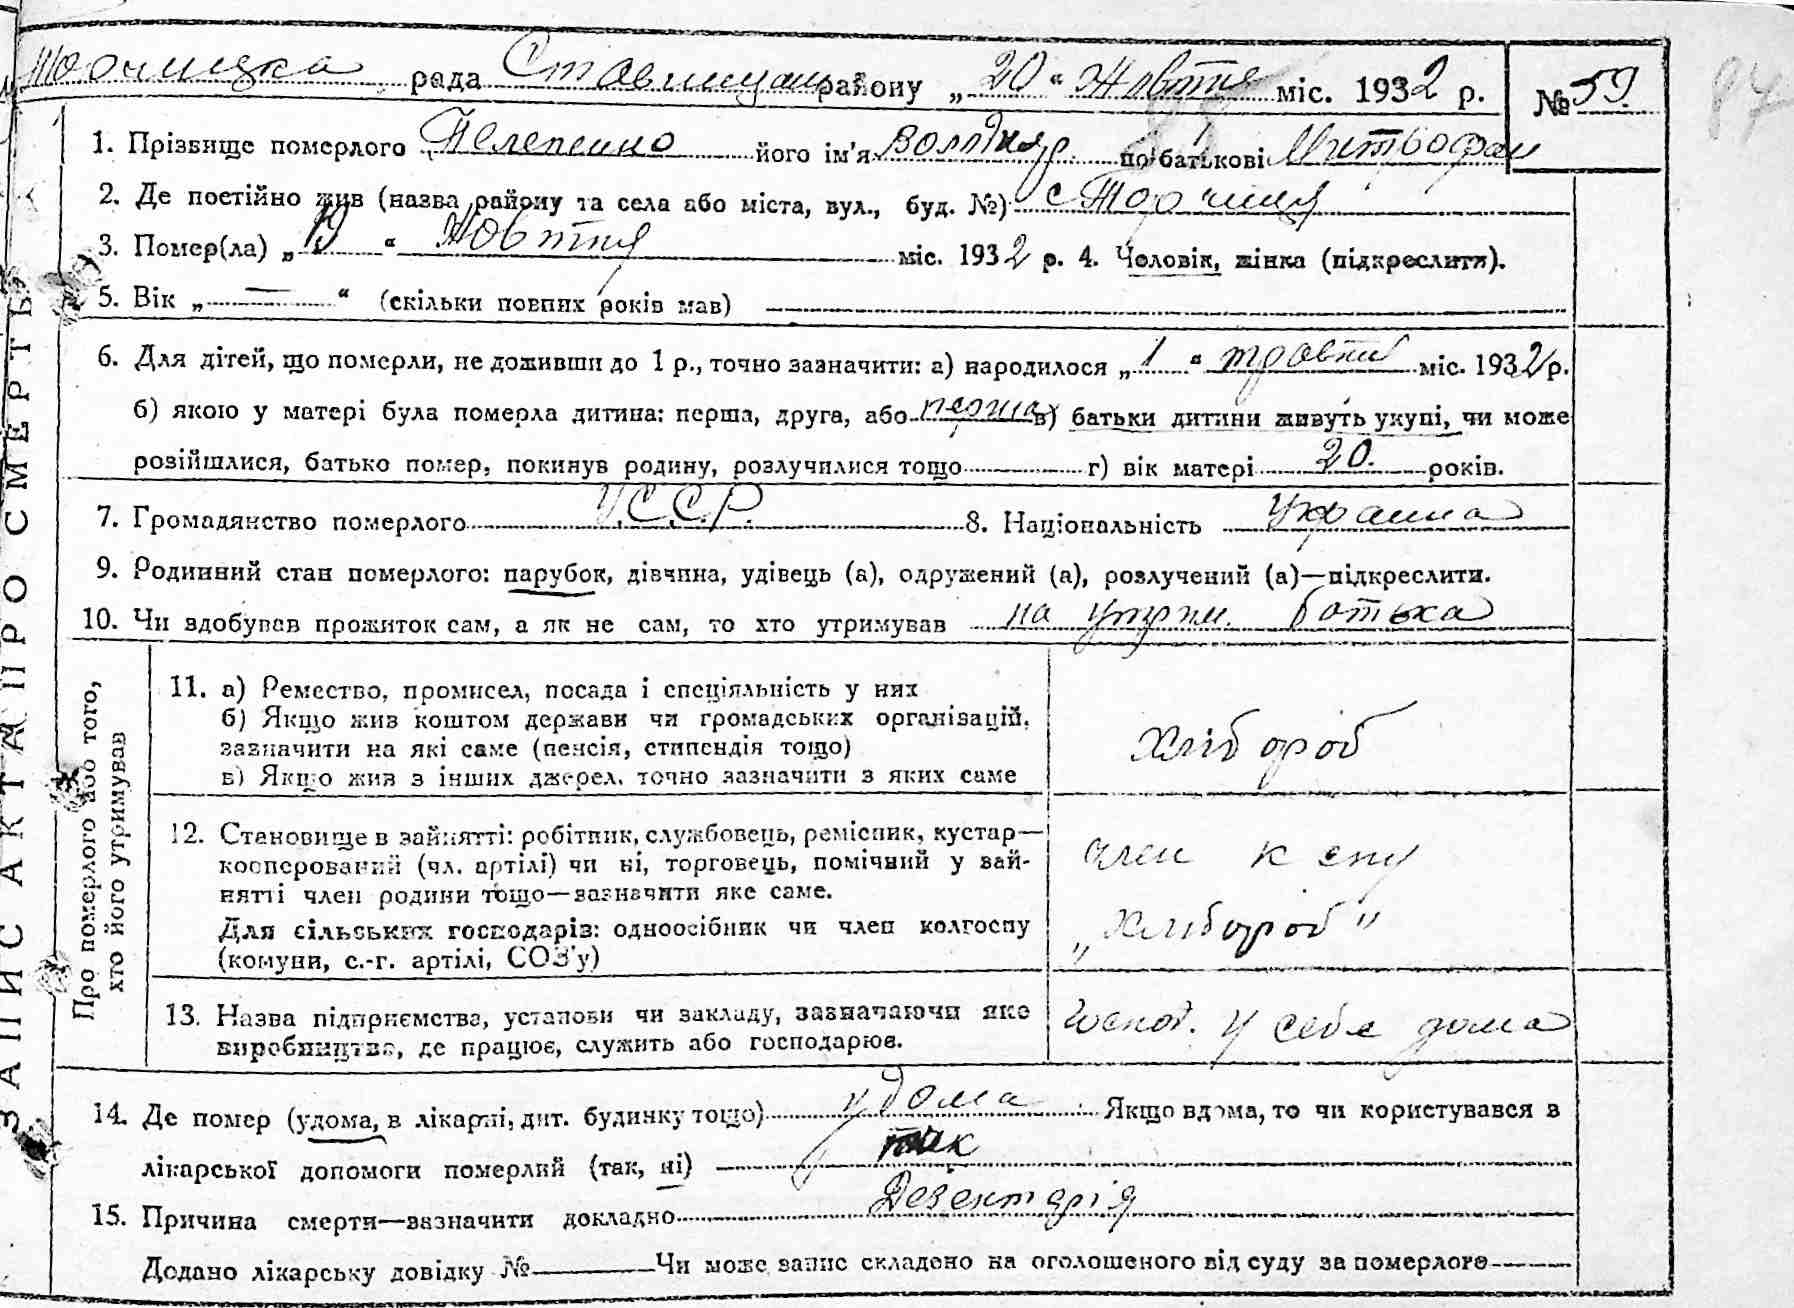 рада Ставищан району „20“ Жовтня міс. 1932 р. № 59.
1. Прізвище померлого його ім'я Володимр. по батькові Митрофан
2. Де постійно жив (назва району та села або міста, вул., буд. №) с Торчиця
3. Помер(ла) „19“ Жовтня міс. 1932 р. 4. Чоловік, жінка (підкреслити).
5. Вік „—“ (скільки повних років мав)
6. Для дітей, що померли, не доживши до 1 р., точно зазначити: а) народилося „1“ травня міс. 1932 р.
б) якою у матері була померла дитина: перша, друга, або перша в) батьки дитини живуть укупі, чи може
розійшлися, батько помер, покинув родину, розлучилися тощо г) вік матері 20. років.
7. Громадянство померлого У.С.С.Р. 8. Національність Украина
9. Родинний стан померлого: парубок, дівчина, удівець (а), одружений (а), розлучений (а)—підкреслити.
10. Чи здобував прожиток сам, а як не сам, то хто утримував на утрим. батька
ЗАПИС АКТА ПРО СМЕРТЬ
Про померлого або того,
хто його утримував
11. а) Ремество, промисел, посада і спеціяльність у них
б) Якщо жив коштом держави чи громадських організацій,
зазначити на які саме (пенсія, стипендія тощо)
в) Якщо жив з інших джерел, точно зазначити з яких саме
хлібороб
12. Становище в зайнятті: робітник, службовець, ремісник, кустар—
кооперований (чл. артілі) чи ні, торговець, помічний у зай-
нятті член родини тощо—зазначити яке саме.
Для сільських господарів: одноосібник чи член колгоспу
(комуни, с.-г. артілі, СОЗ'у)
член
„Хлібороб“
13. Назва підприємства, установи чи закладу, зазначаючи яке
виробництво, де працює, служить або господарює.
Господ. у себе дома
14. Де помер (удома, в лікарні, дит. будинку тощо) удома Якщо вдома, то чи користувався з
лікарської допомоги померлий (так, ні) так
15. Причина смерти—зазначити докладно Дезентерія
Додано лікарську довідку №——Чи може запис складено на оголошеного від суду за померлого——